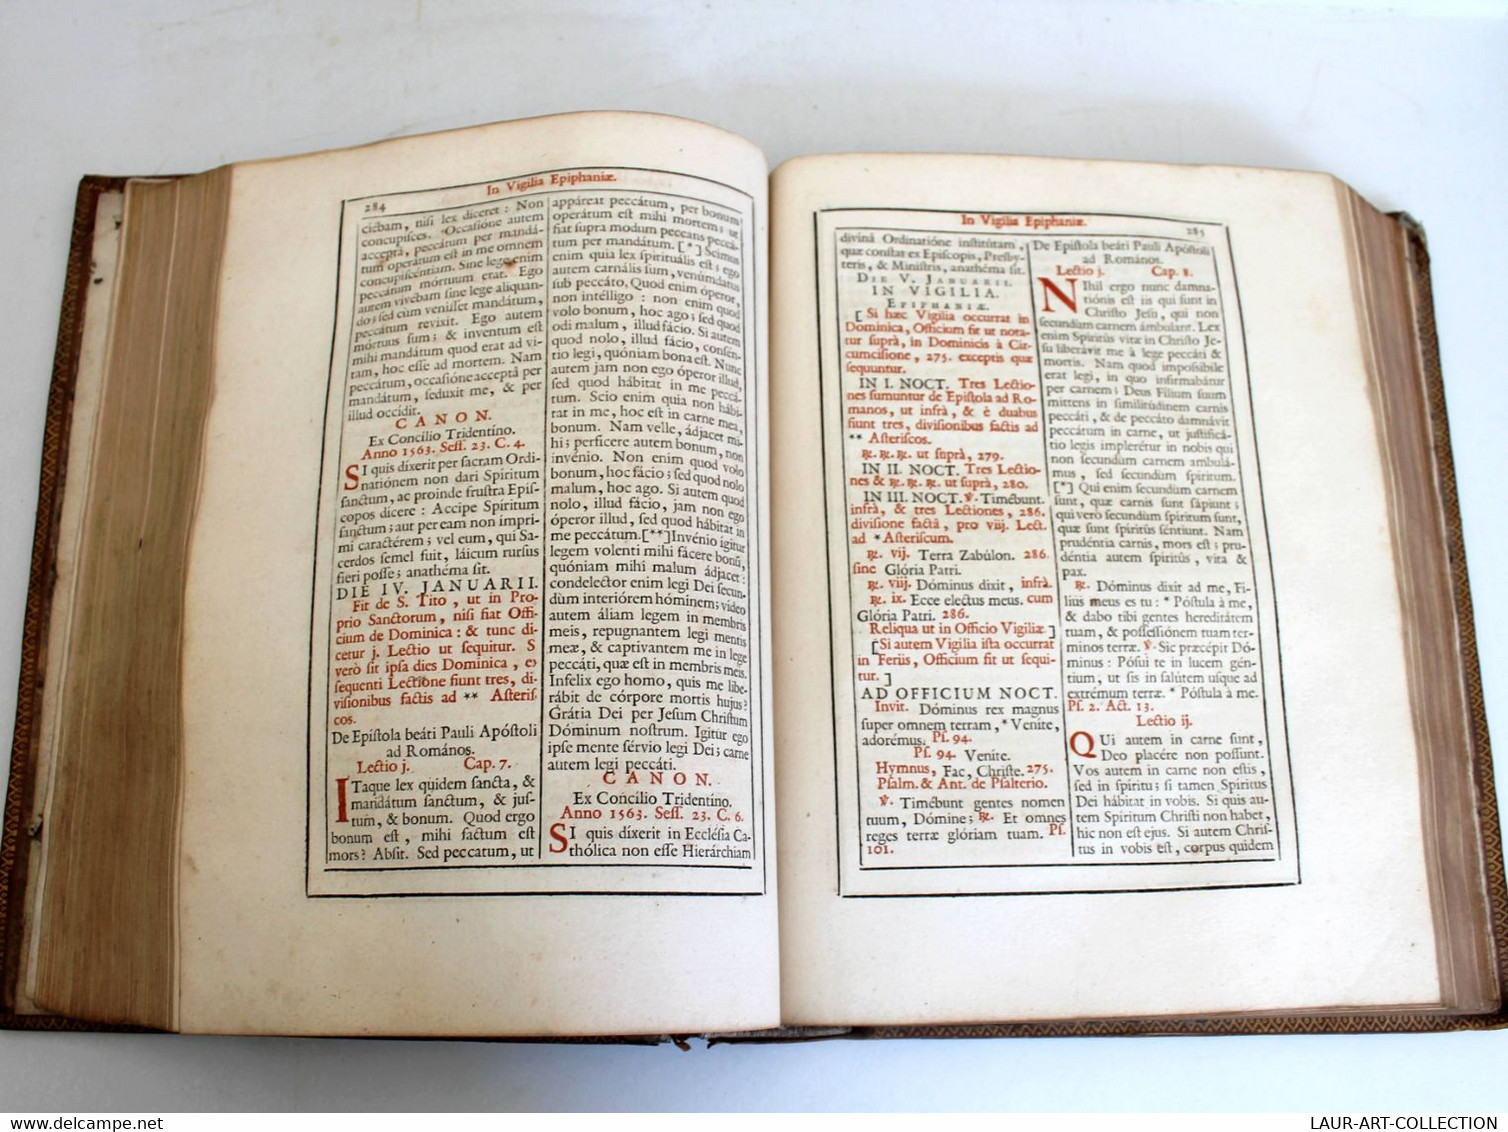 In Vigilia Epiphaniæ.
284
cićbam, niſi lex diceret : Non
concupiſces. Occaſióne autem
accepta, peccátum per mandá-
tum operátum eſt in me omnem
concupiſcéntiam. Sine lege enim
peccátum mórtuum erat. Ego
autem vivébam ſine lege aliquan-
do; ſed cùm veníſſet mandátum,
peccátum revíxit. Ego autem
mórtuus ſum; & invéntum eſt
mihi mandátum quod erat ad vi-
tam, hoc eſſe ad mortem. Nam
peccátum, occaſióne acceptâ per
mandátum, ſedúxit me, & per
illud occídit.
CANON.
Ex Concílio Tridentíno.
Anno 1563. Seſſ. 23. C. 4.
SI quis díxerit per ſacram Ordi-
natiónem non dari Spíritum
ſanctum, ac proinde fruſtra Epíſ-
copos dícere : Accipe Spíritum
ſanctum; aut per eam non impri-
mi caractérem; vel eum, qui Sa-
cerdos ſemel fuit, láicum rurſus
fíeri poſſe; anathéma ſit.
DIE IV. JANUARII.
Fit de S. Tito, ut in Pro-
prio Sanctorum, niſi fiat Offi-
cium de Dominica : & tunc di-
cetur j. Lectio ut ſequitur. S
verò ſit ipſa dies Dominica, e
ſequenti Lectione fiunt tres, di-
viſionibus factis ad ** Aſteriſ-
cos.
De Epíſtola beáti Pauli Apóſtoli
ad Romános.
Lectio j. Cap. 7.
ITaque lex quidem ſancta, &
mandátum ſanctum, & juſ-
tum, & bonum. Quod ergo
bonum eſt, mihi factum eſt
mors? Abſit. Sed peccatum, ut
appáreat peccátum, per bonum
operátum eſt mihi mortem; ut
fiat ſupra modum peccans peccá-
tum per mandátum. [*] Scimus
enim quia lex ſpirituális eſt; ego
autem carnális ſum, venúmdatus
ſub peccáto, Quod enim óperor,
non intélligo : non enim quod
volo bonum, hoc ago; ſed quod
odi malum, illud fácio. Si autem
quod nolo, illud fácio, conſén-
tio legi, quóniam bona eſt. Nunc
autem jam non ego óperor illud,
ſed quod hábitat in me peccá-
tum. Scio enim quia non hábi-
tat in me, hoc eſt in carne mea,
bonum. Nam velle, ádjacet mi-
hi; perfícere autem bonum, non
invénio. Non enim quod volo
bonum, hoc fácio; ſed quod nolo
malum, hoc ago. Si autem quod
nolo, illud fácio, jam non ego
óperor illud, ſed quod hábitat in
me peccátum.[**] Invénio igitur
legem volenti mihi fácere bonū,
quóniam mihi malum ádjacet:
condelector enim legi Dei ſecun-
dùm interiórem hóminem; video
autem áliam legem in membris
meis, repugnantem legi mentis
meæ, & captivantem me in lege
peccáti, quæ eſt in membris meis.
Infelix ego homo, quis me libe-
rábit de córpore mortis hujus?
Grátia Dei per Jeſum Chriſtum
Dóminum noſtrum. Igitur ego
ipſe mente ſérvio legi Dei; carne
autem legi peccáti.
CANON.
Ex Concílio Tridentíno.
Anno 1563. Seſſ. 23. C. 6.
SI quis díxerit in Eccléſia Ca-
thólica non eſſe Hierárchiam
In Vigilia Epiphaniæ.
285
divinâ Ordinatióne inſtitútam,
quæ conſtat ex Epiſcopis, Preſby-
teris, & Miniſtris, anathéma ſit.
DIE V. JANUARII.
IN VIGILIA
EPIPHANIÆ.
[ Si hæc Vigilia occurrat in
Dominica, Officium fit ut nota-
tur ſuprà, in Dominicis à Cir-
cumciſione, 275. exceptis quæ
ſequuntur.
IN I. NOCT. Tres Lectio-
nes ſumuntur de Epiſtola ad Ro-
manos, ut infrà, & è duabus
fiunt tres, diviſionibus factis ad
** Aſteriſcos.
℟. ℟. ℟. ut ſuprà, 279.
IN II. NOCT. Tres Lectio-
nes & ℟. ℟. ℟. ut ſuprà, 280.
IN III. NOCT. ℣. Timébunt.
infrà, & tres Lectiones, 286.
diviſione factâ, pro viij. Lect.
ad * Aſteriſcum.
℟. vij. Terra Zabúlon. 286.
ſine Glória Patri.
℟. viij. Dóminus dixit, infrà.
℟. ix. Ecce electus meus. cum
Glória Patri. 286.
Reliqua ut in Officio Vigiliæ ]
[ Si autem Vigilia iſta occurrat
in Feriis, Officium fit ut ſequi-
tur. ]
AD OFFICIUM NOCT.
Invit. Dóminus rex magnus
ſuper omnem terram, * Veníte,
adorémus. Pſ. 94.
Pſ. 94. Veníte.
Hymnus, Fac, Chriſte. 275.
Pſalm. & Ant. de Pſalterio.
℣. Timébunt gentes nomen
tuum, Dómine; ℟. Et omnes
reges terræ glóriam tuam. Pſ.
101.
De Epíſtola beáti Pauli Apóſtoli
ad Romános.
Lectio j. Cap. 8.
NIhil ergo nunc damna-
tiónis eſt iis qui ſunt in
Chriſto Jeſu, qui non
ſecundùm carnem ámbulant. Lex
enim Spíritûs vitæ in Chriſto Je-
ſu liberávit me à lege peccáti &
mortis. Nam quod impoſsíbile
erat legi, in quo infirmabátur
per carnem; Deus Fílium ſuum
mittens in ſimilitúdinem carnis
peccáti, & de peccáto damnávit
peccátum in carne, ut juſtificá-
tio legis implerétur in nobis qui
non ſecundùm carnem ambulá-
mus, ſed ſecundùm ſpíritum.
[*] Qui enim ſecundùm carnem
ſunt, quæ carnis ſunt ſápiunt;
qui verò ſecundùm ſpíritum ſunt,
quæ ſunt ſpíritûs ſéntiunt. Nam
prudéntia carnis, mors eſt; pru-
déntia autem ſpíritûs, vita &
pax.
℟. Dóminus dixit ad me, Fí-
lius meus es tu : * Póſtula à me,
& dabo tibi gentes hereditátem
tuam, & poſſeſſiónem tuam tér-
minos terræ. ℣. Sic præcépit Dó-
minus : Póſui te in lucem gén-
tium, ut ſis in ſalútem uſque ad
extrémum terræ. * Póſtula à me.
Pſ. 2. Act. 13.
Lectio ij.
QUi autem in carne ſunt,
Deo placére non poſſunt.
Vos autem in carne non eſtis,
ſed in ſpíritu; ſi tamen Spíritus
Dei hábitat in vobis. Si quis au-
tem Spíritum Chriſti non habet,
hic non eſt ejus. Si autem Chriſ-
tus in vobis eſt, corpus quidem
LAUR-ART-COLLECTION
delcampe.net